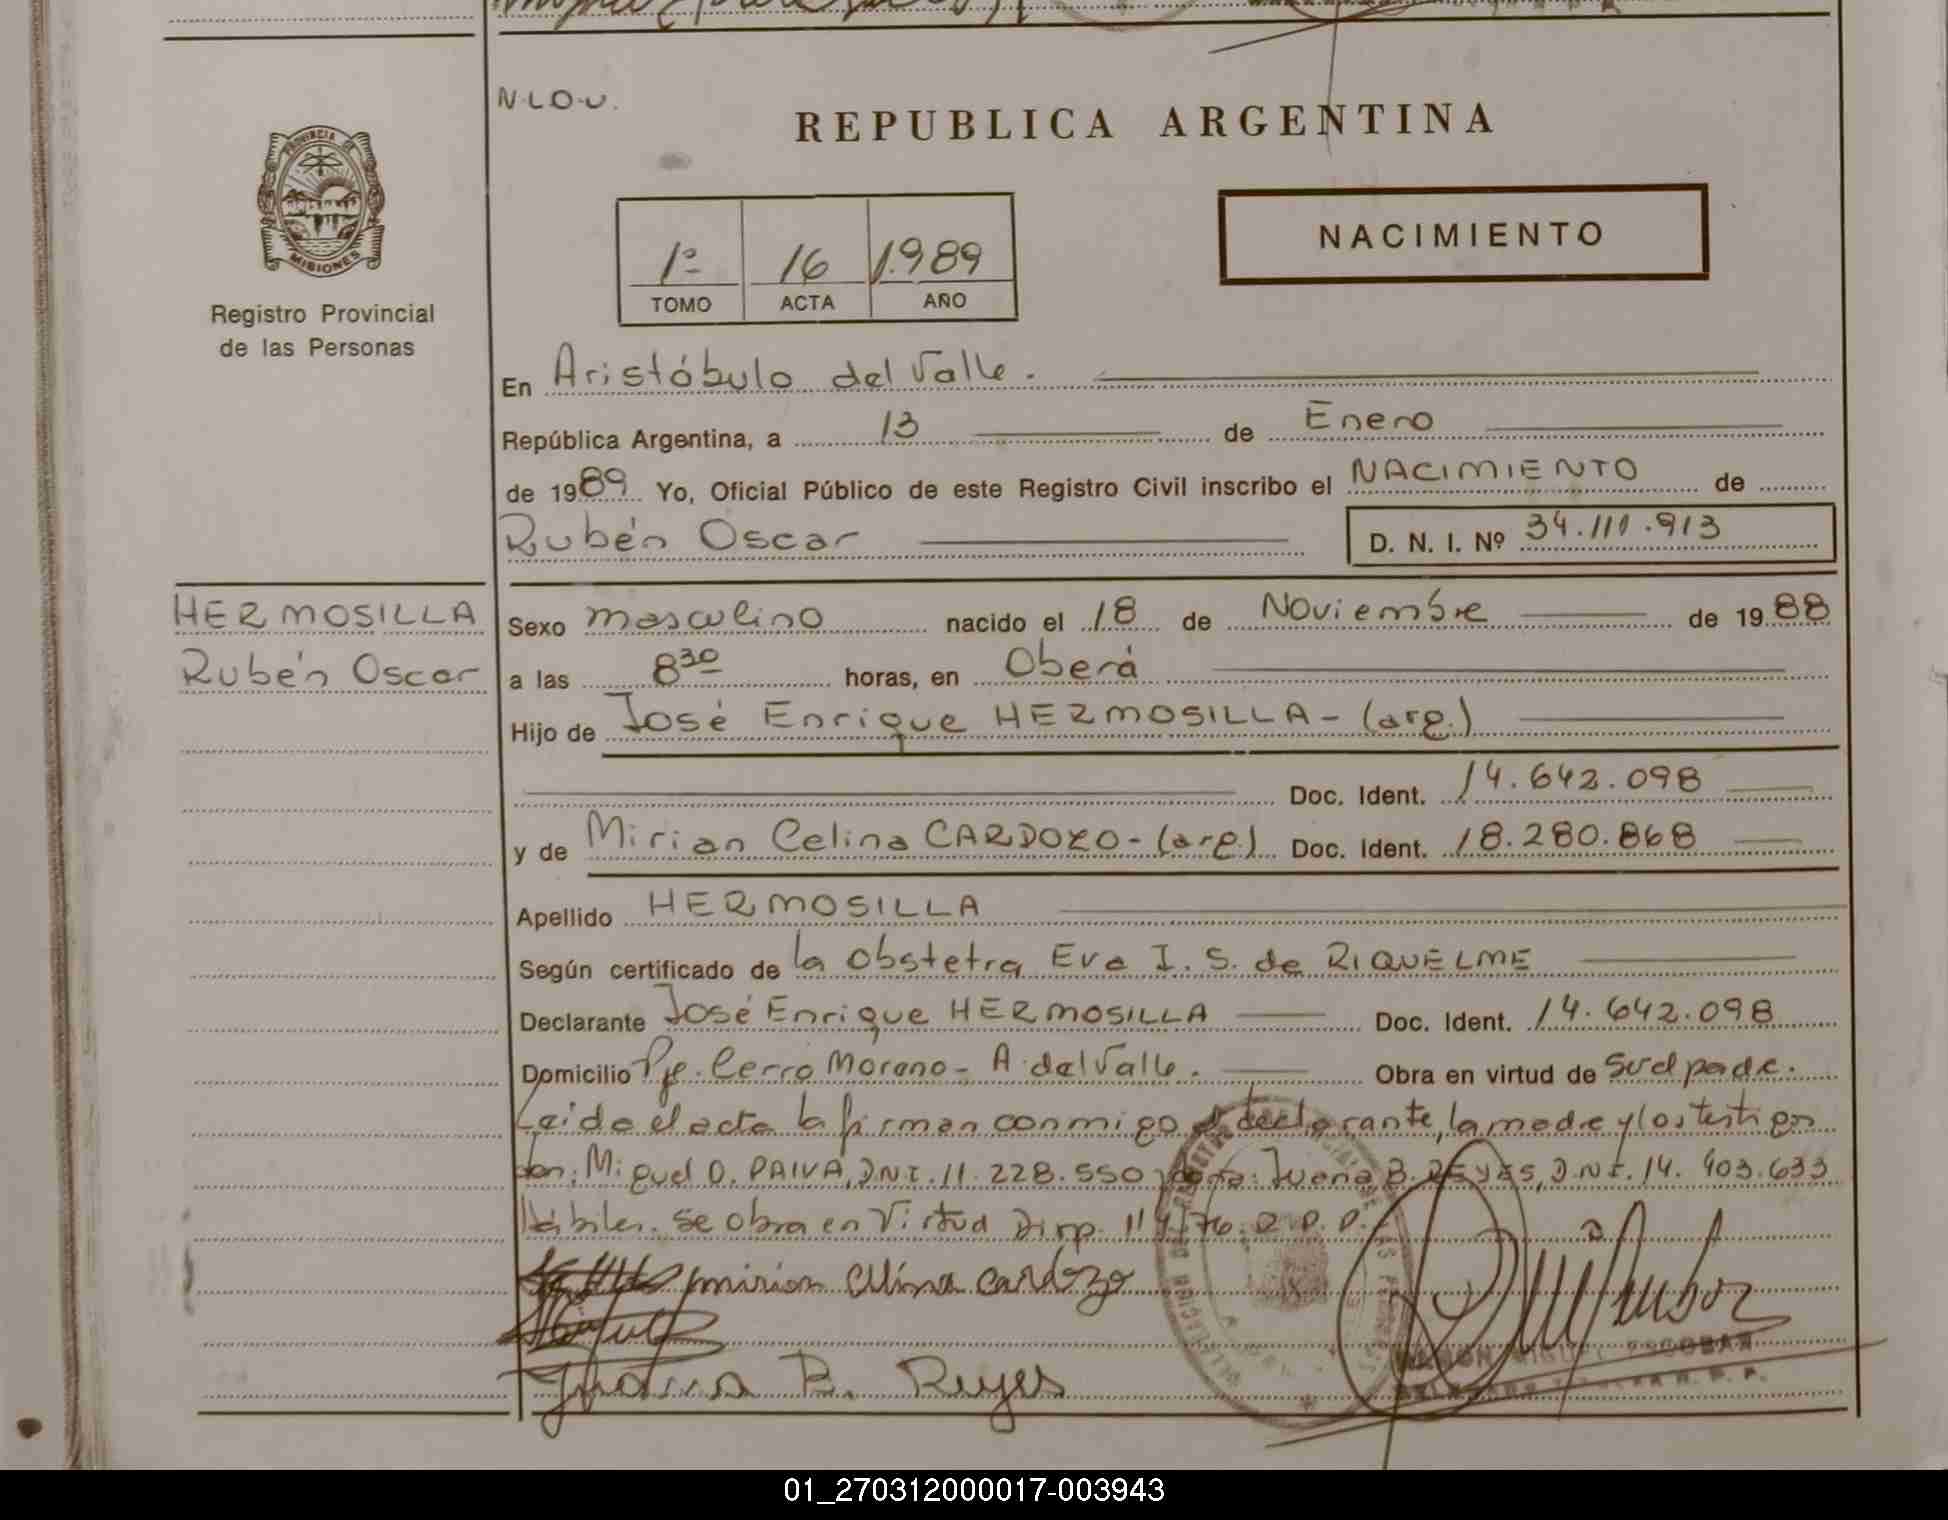 N.L.O.U.
REPUBLICA ARGENTINA
PROVINCIA DE
MISIONES
Registro Provincial
de las Personas
NACIMIENTO
1º 16 1.989
TOMO ACTA AÑO
En Aristóbulo del Valle.
República Argentina, a 13 de Enero
de 1989 Yo, Oficial Público de este Registro Civil inscribo el NACIMIENTO de
Rubén Oscar D. N. I. Nº 34.111.913
HERMOSILLA
Rubén Oscar
Sexo masculino nacido el 18 de Noviembre de 1988
a las 8 30 horas, en Oberá
Hijo de José Enrique HERMOSILLA - (arg.)
Doc. Ident. 14.642.098
y de Mirian Celina CARDOZO - (arg.) Doc. Ident. 18.280.868
Apellido HERMOSILLA
Según certificado de la Obstetra Eva I. S. de RIQUELME
Declarante José Enrique HERMOSILLA Doc. Ident. 14.642.098
Domicilio Pje. Cerro Moreno - A. del Valle. Obra en virtud de su padre.
Leida el acta la firman conmigo el declarante, la madre y los testigos
don: Miguel O. PAIVA, D.N.I. 11.228.550 y doña: Juana B. REYES, D.N.I. 14.403.633
Hábiles. Se obra en Virtud Disp. R.P.P.
mirian Celina Cardozo
Juana B. Reyes
RAMON MIGUEL ESCOBAR
01_270312000017-003943